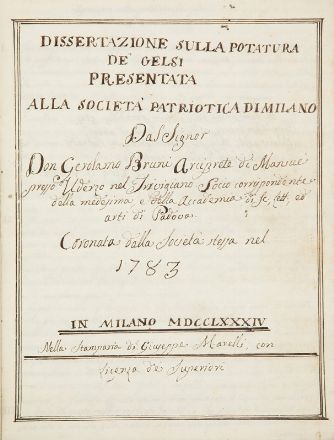 DISSERTAZIONE SULLA POTATURA
DE' GELSI
PRESENTATA
ALLA SOCIETÀ PATRIOTICA DI MILANO
Dal Signor
Don Gerolamo Bruni Arciprete di Mansuè
presso Uderzo nel Trivigiano Socio corrispondente
della medesima e della Accademia di Sc, lett, ed
arti di Padova
Coronata dalla Società stessa nel
1783
IN MILANO MDCCLXXXIV
Nella Stamparia di Giuseppe Marelli, con
Licenza de' Superiori